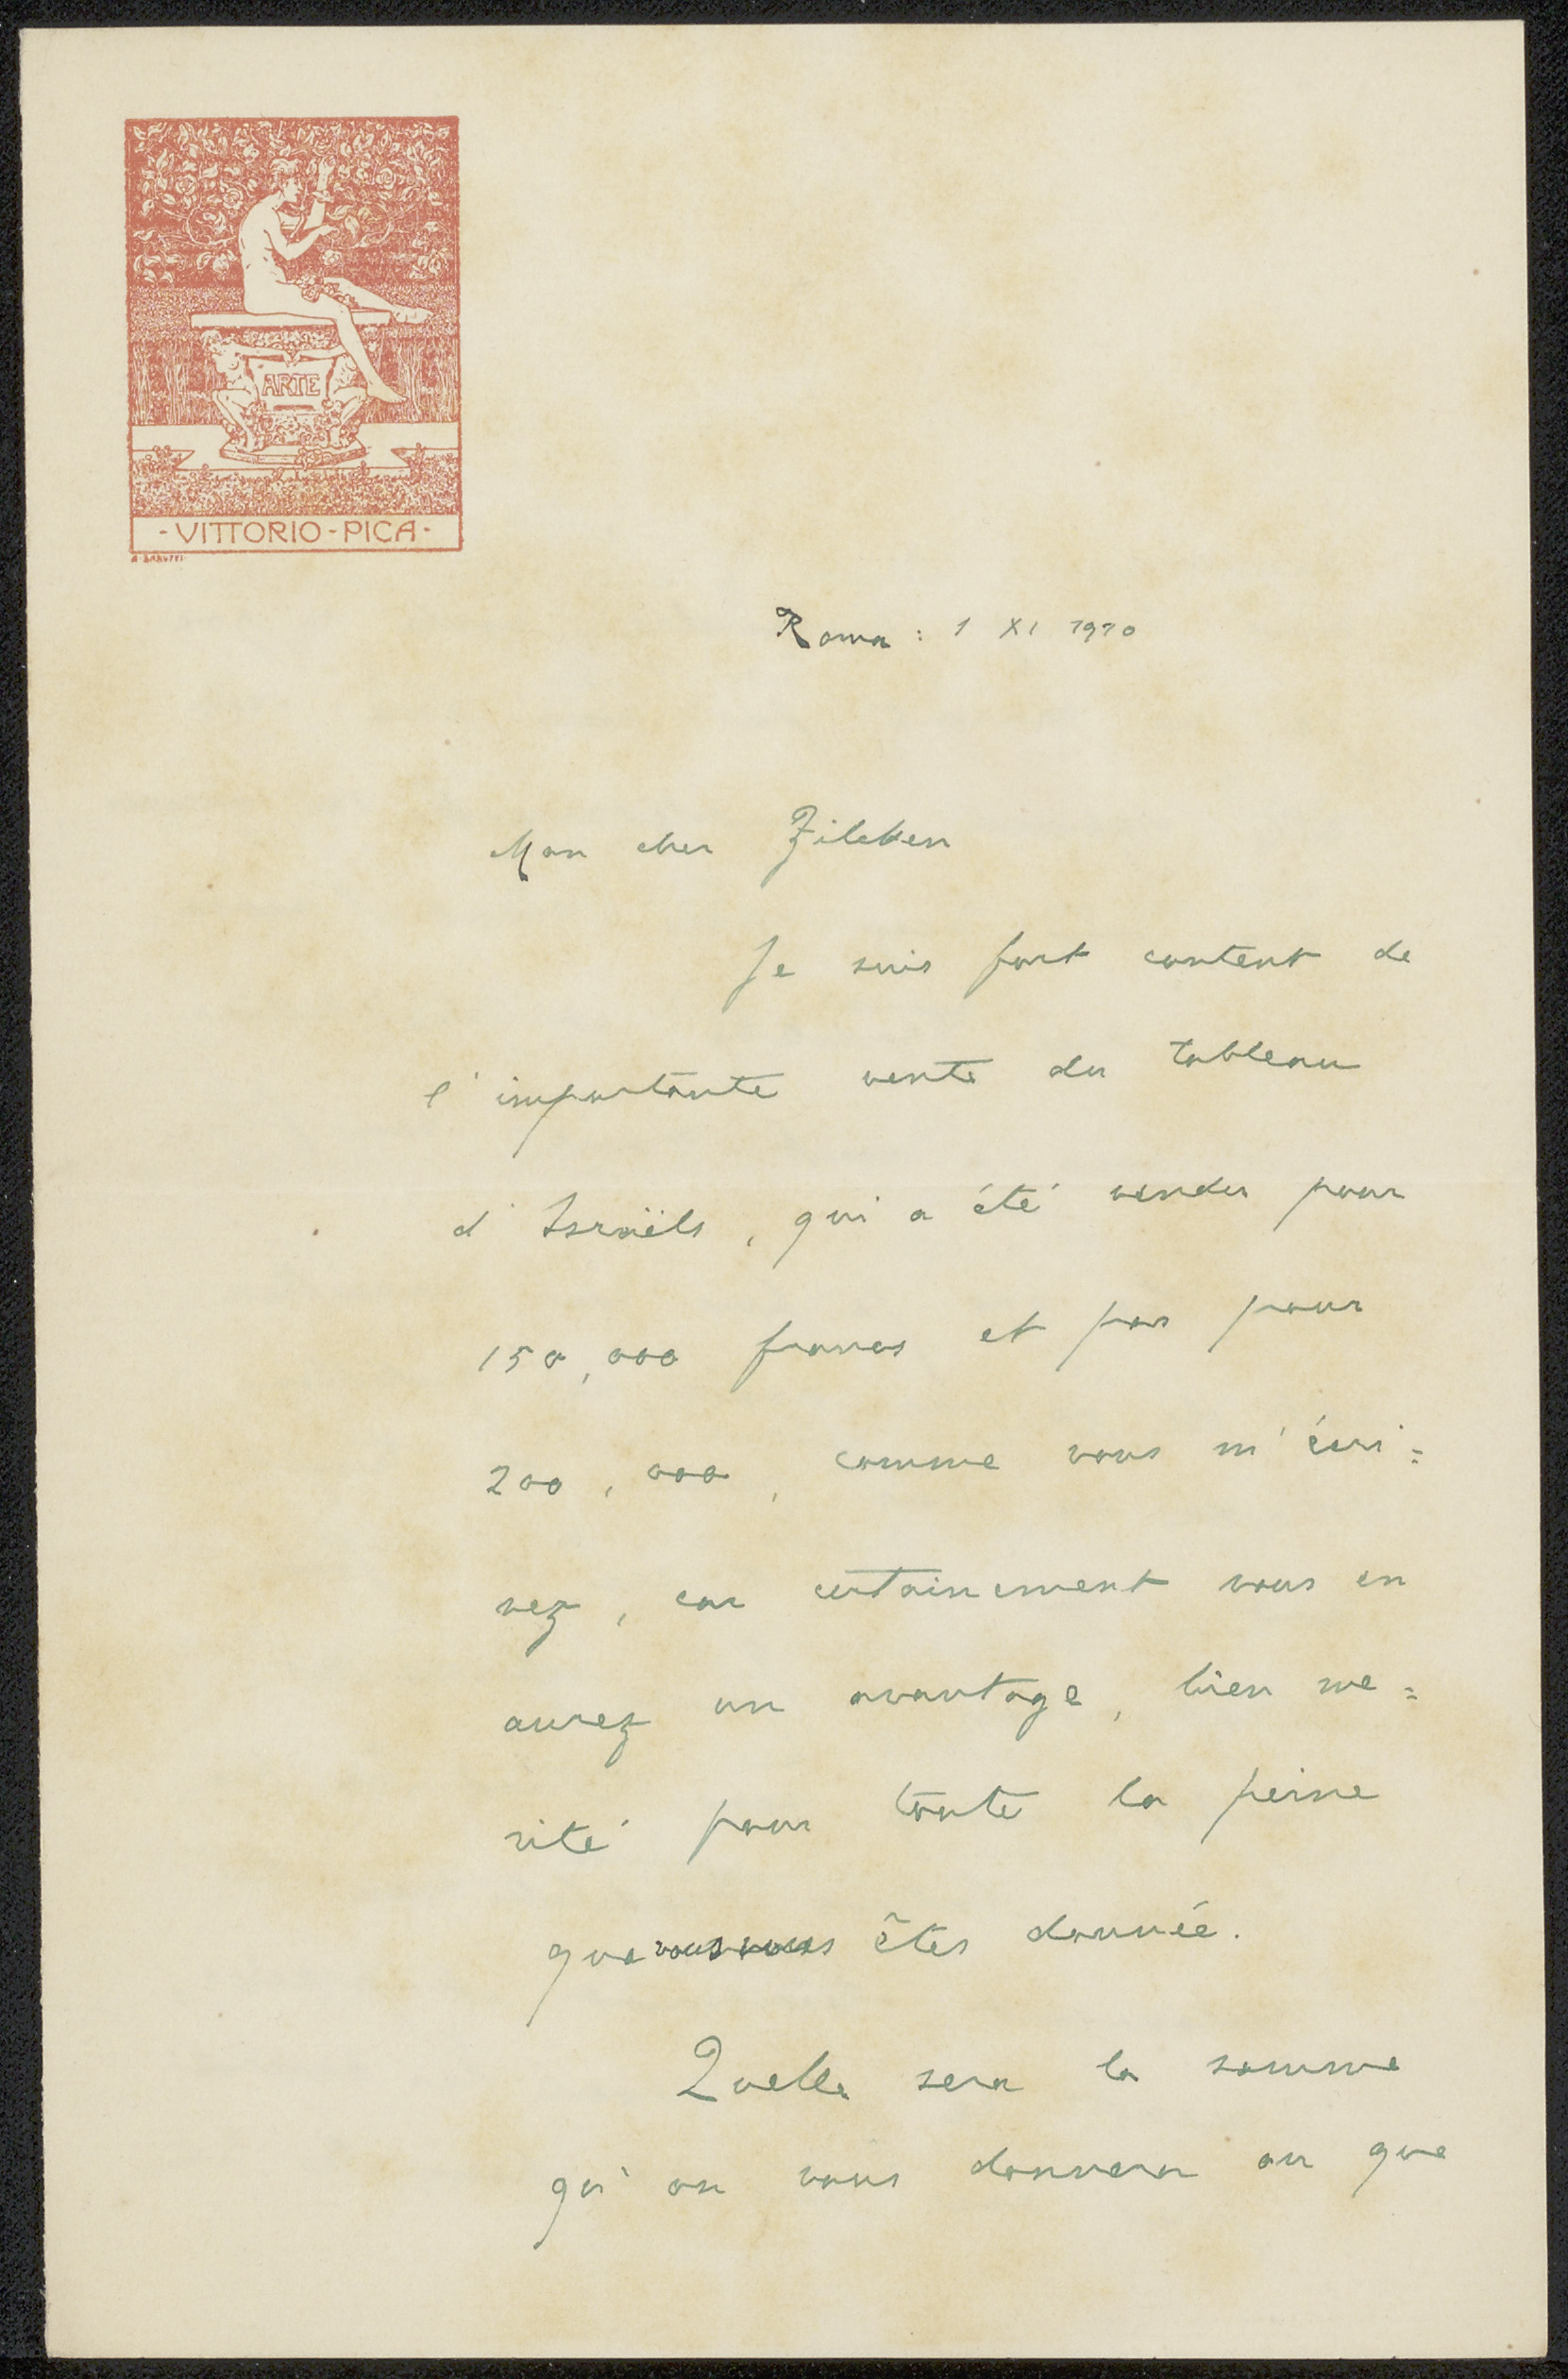 ARTE
- VITTORIO - PICA -
A. BARUFFI
Roma : 1 XI 1910
Mon cher Zilcken
Je suis fort content de
l'importante vente du tableau
d'Israëls, qui a été vendu pour
150,000 francs et pas pour
200,000, comme vous m'écri=
vez, car certainement vous en
aurez un avantage, bien me=
rité pour toute la peine
que vous vous êtes donnée.
Quelle sera la somme
qu'on vous donnera ou que